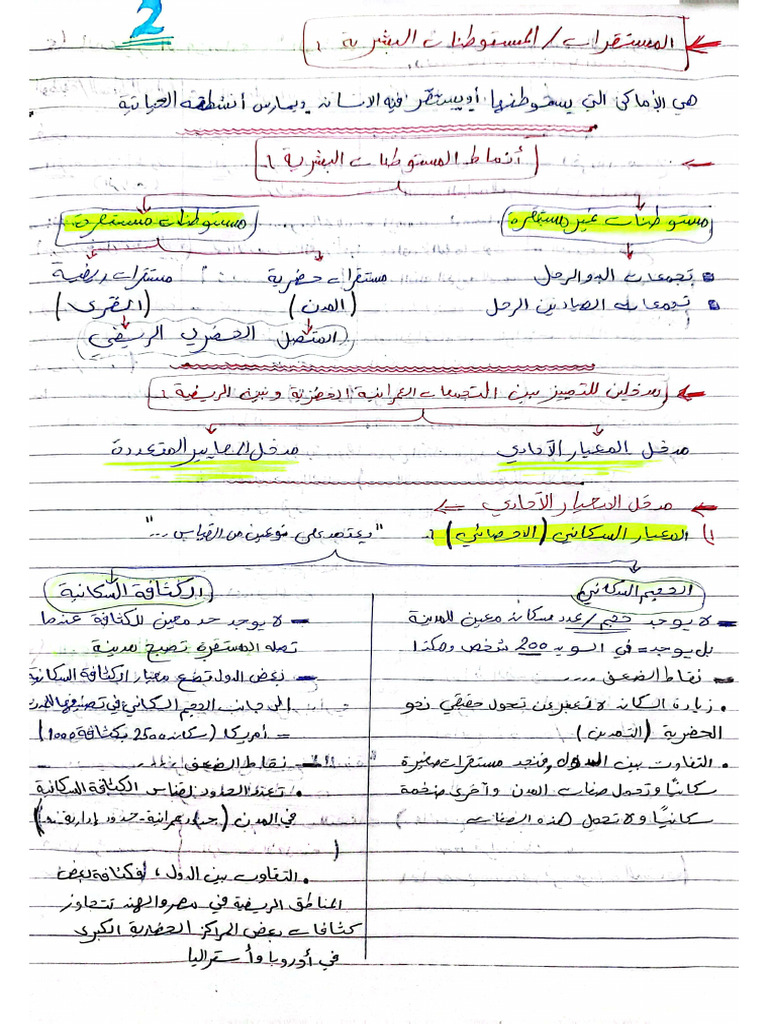 2
المستقرات / المستوطنات البشرية :
هي الأماكن التي يستوطنها أو يستقر فيه الانسان ويمارس أنشطته الحياتية
أنماط المستوطنات البشرية :
مستوطنات غير مستقرة
مستوطنات مستقرة
تجمعات البدو الرحل
تجمعات الصيادين الرحل
مستقرات حضرية
(المدن)
مستقرات ريفية
(القرى)
المتصل الحضري الريفي
مدخلين للتمييز بين التجمعات العمرانية الحضرية وبين الريفية :
مدخل المعيار الأحادي
مدخل المعايير المتعددة
مدخل المعيار الأحادي
1) المعيار السكاني (الاحصائي) :
"ويعتمد على نوعين من القياس ..."
الحجم السكاني
- لا يوجد حجم / عدد سكان معين للمدينة
بل يوجد = في السويد 200 شخص وهكذا
- نقاط الضعف ....
. زيادة السكان لا تعبر عن تحول حقيقي نحو
الحضرية (التمدين)
. التفاوت بين الدول، فنجد مستقرات صغيرة
سكانيًا وتحمل صفات المدن وآخرى ضخمة
سكانيًا ولا تحمل هذه الصفات
الكثافة السكانية
- لا يوجد حد معين للكثافة عندما
تصله المستقرة تصبح مدينة
- بعض الدول تضع معيار الكثافة السكانية
الى جانب الحجم السكاني في تصنيفها للمدن
- أمريكا (سكانه 2500 بكثافة 1000)
- نقاط الضعف ....
. تعدد الحدود لقياس الكثافة السكانية
في المدن (حدود عمرانية - حدود إدارية
)
. التفاوت بين الدول، فكثافة بعض
المناطق الريفية في مصر والهند تتجاوز
كثافات بعض المراكز الحضارية الكبرى
في أوروبا وأستراليا